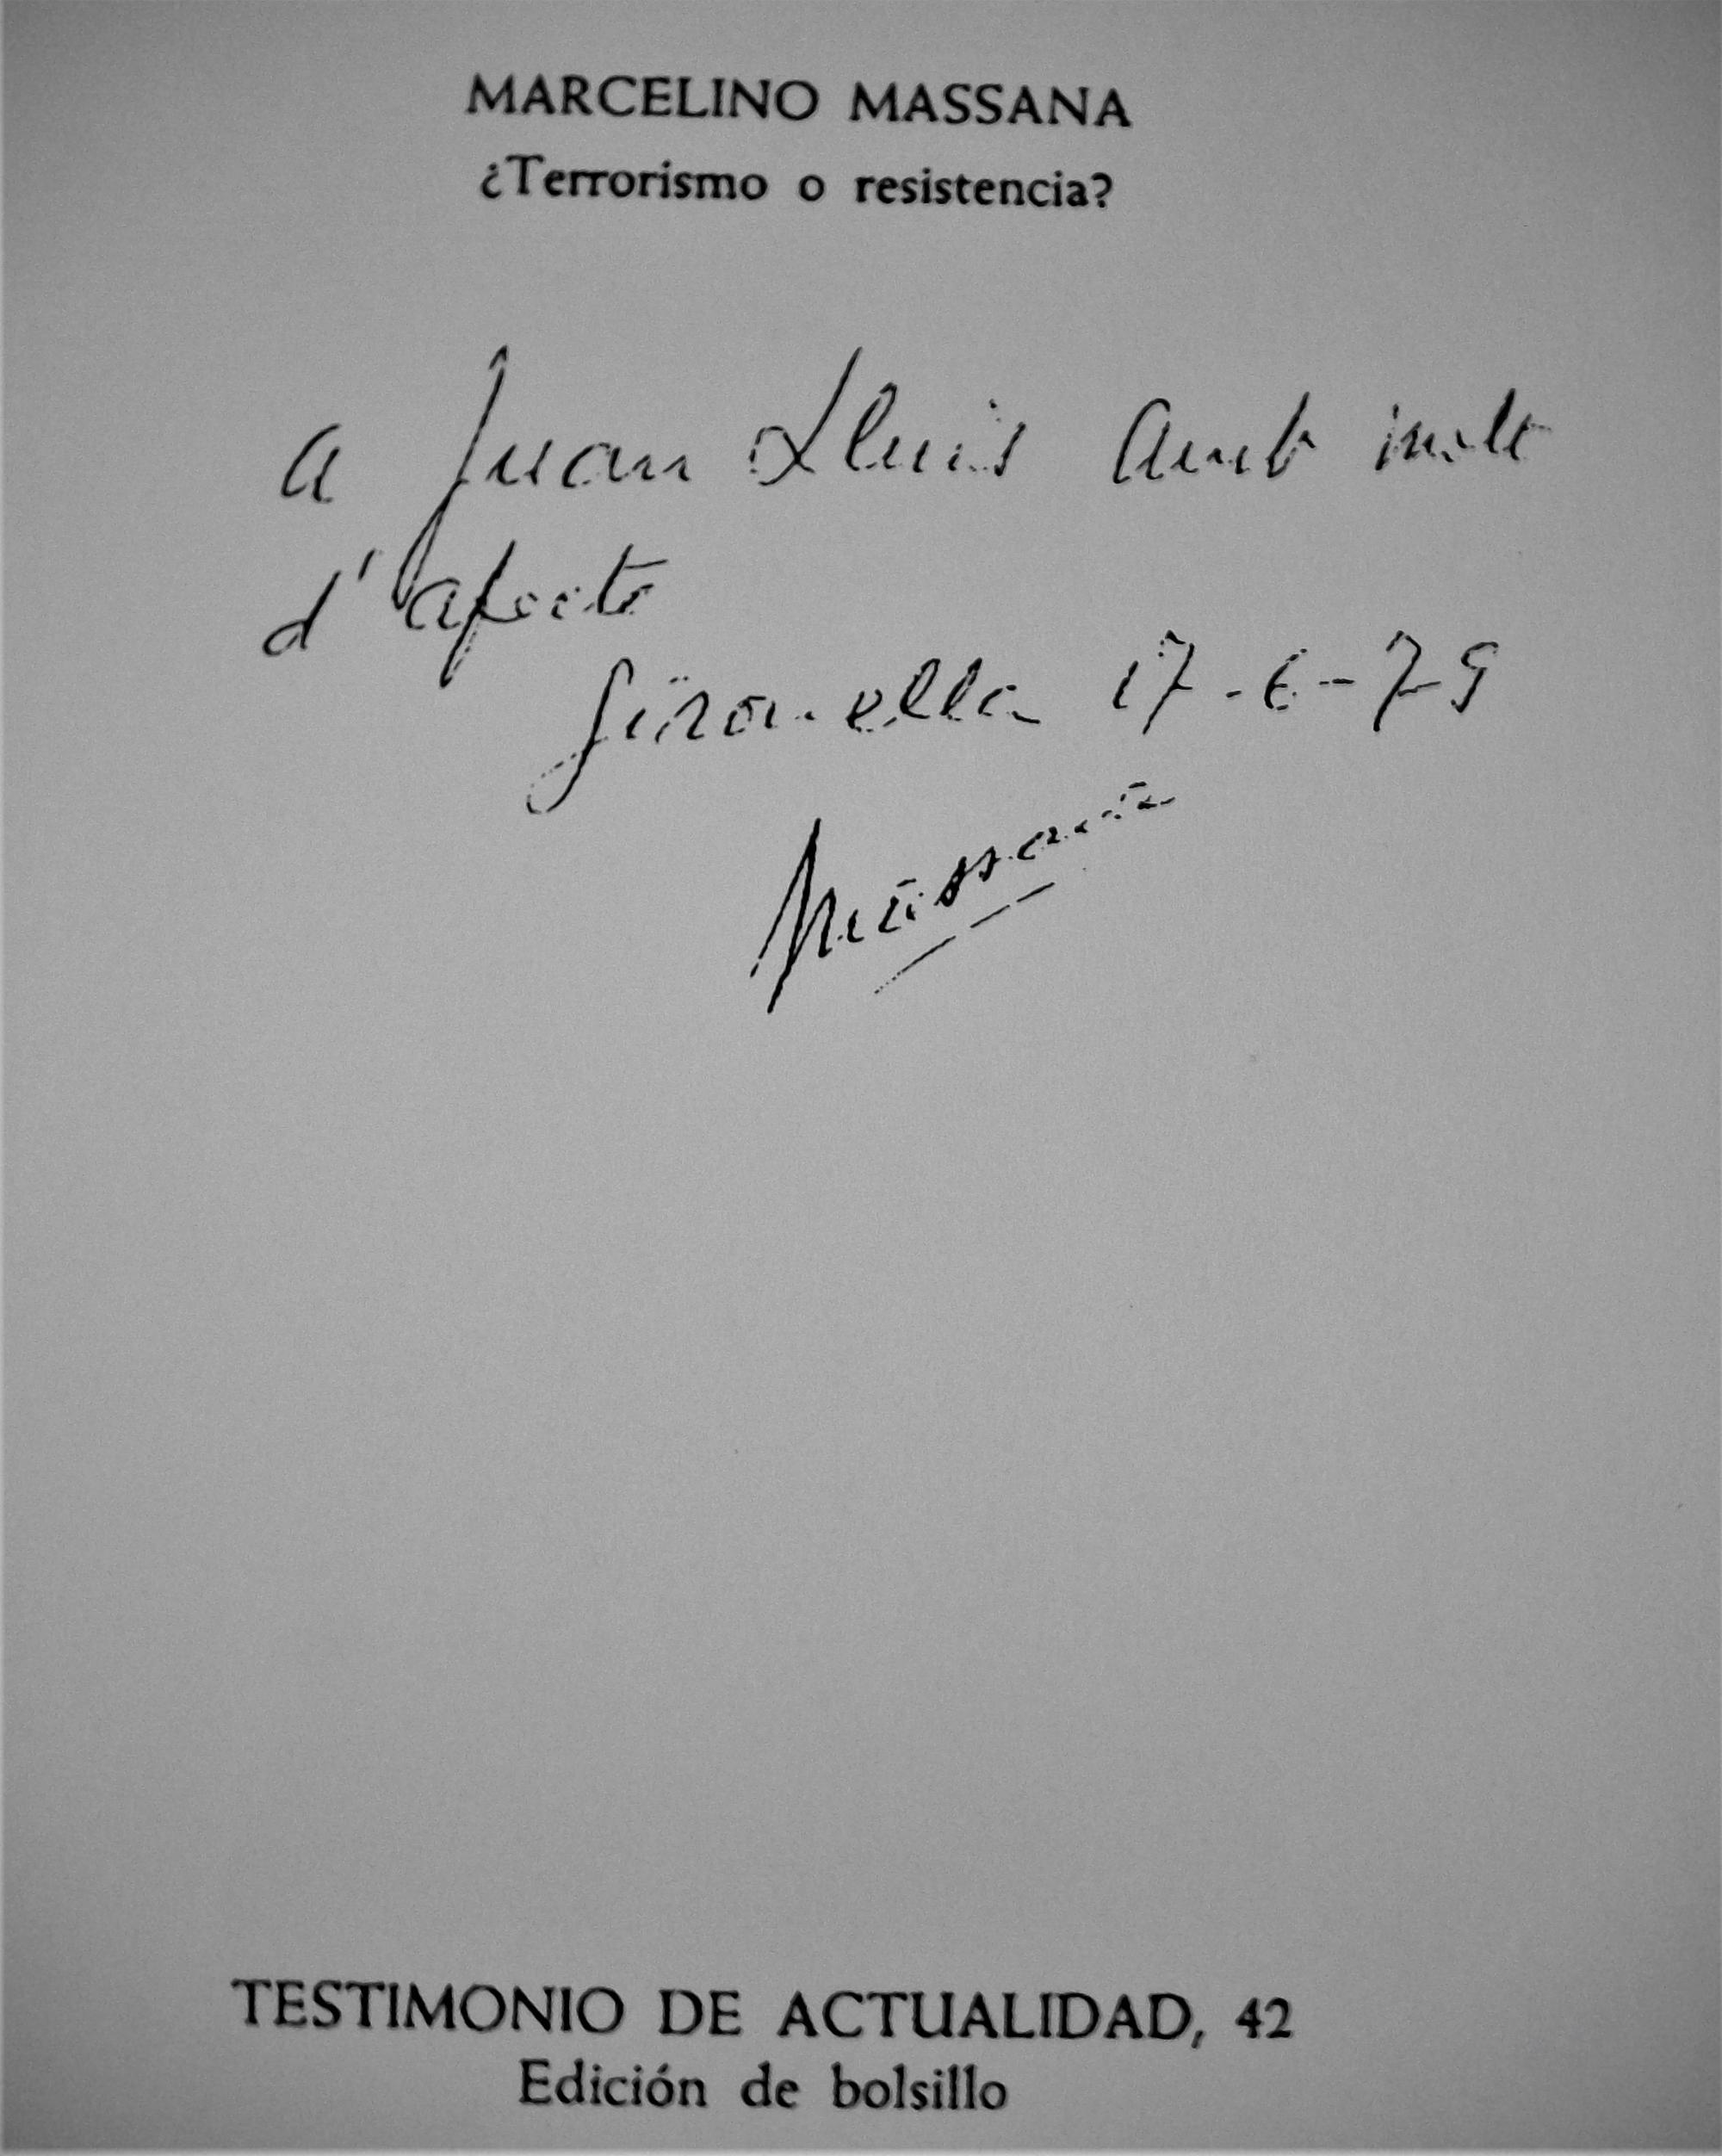 MARCELINO MASSANA
¿Terrorismo o resistencia?
a Juan Lluis Amb molt
d'afecte
Gironella 17-6-79
Massana
TESTIMONIO DE ACTUALIDAD, 42
Edición de bolsillo